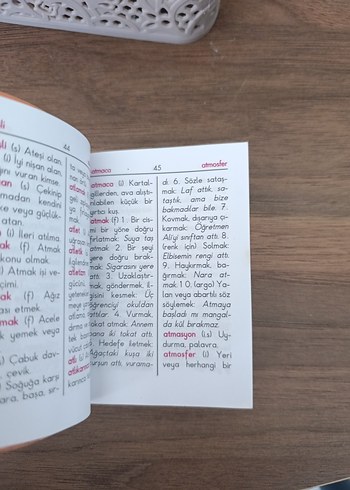 44
(s) Ateşi alan,
(i) İyi nişan alan,
ını vuran kimse.
(s) Çekinip
madan kendini
ve veya güçlük-
atan.
(i) İleri atılma
(f) Atmak
konu olmak.
(i) Atmak işi ve-
çimi.
(f) Ağız
ası etmek.
mak (f) Acele
yemek veya
(s) Çabuk dav-
çevik.
(i) Soğuğa karşı
ara, başa, sır-
atmaca
45
atmosfer
atmaca (i) Kartal-
gillerden, ava alıştı-
rılabilen küçük bir
yırtıcı kuş.
atmak (f) 1. Bir cis-
mi bir yöne doğru
fırlatmak: Suya taş
atmak. 2. Bir şeyi
yere doğru bırak-
mak: Sigarasını yere
attı. 3. Uzaklaştır-
mak, göndermek, il-
gisini kesmek: Üç
öğrenciyi okuldan
attılar. 4. Vurmak,
tokat atmak: Annem
bana iki tokat attı.
5. Hedefe iletmek:
Ağaçtaki kuşa iki
kurşun attı, vurama-
dı. 6. Sözle sataş-
mak: Laf attık, sa-
taştık, ama bize
bakmadılar bile. 7.
Kovmak, dışarıya çı-
karmak: Öğretmen
Ali'yi sınıftan attı. 8.
(renk için) Solmak:
Elbisemin rengi attı.
9. Haykırmak, ba-
ğırmak: Nara at-
mak. 10. (argo) Ya-
lan veya abartılı söz
söylemek: Atmaya
başladı mı mangal-
da kül bırakmaz.
atmasyon (s) Uy-
durma, palavra.
atmosfer (i) Yeri
veya herhangi bir